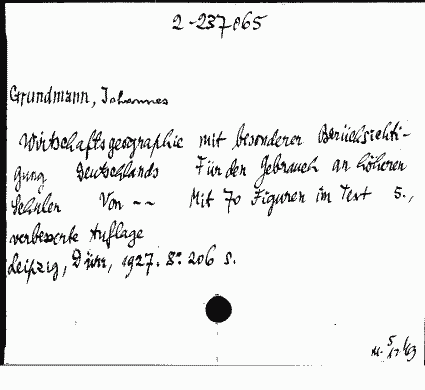 2-237865
Grundmann, Johannes
Wirtschaftsgeographie mit besonderer Berücksichti-
gung Deutschlands Für den Gebrauch an höheren
Schulen Von -- Mit 70 Figuren im Text 5.,
verbesserte Auflage
Leipzig, Dürr, 1927. 8° 206 S.